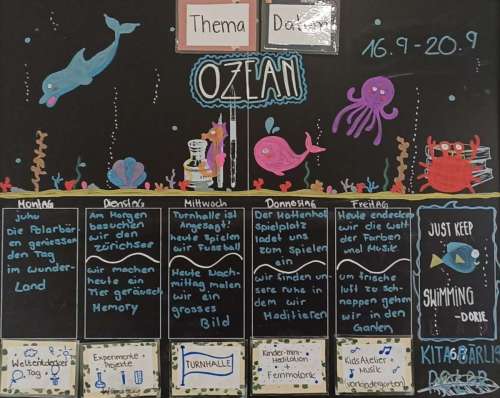 Thema
Datum
16.9-20.9
OZEAN
Montag
Dienstag
Mittwoch
Freitag
juhu
Die Polarbär-
en geniessen
den Tag
im wunder-
Land
Am Morgen
besuchen
wir den
Zürichsee
wir machen
heute ein
Tier geräusch
Memory
Turnhalle ist
Angesagt!
heute spielen
wir Fussball
Heute Nach-
mittag malen
wir ein
grosses
Bild
Der
Spielplatz
ladet uns
zum Spielen
ein
wir finden un-
sere ruhe in
dem wir
Meditieren
Heute endecken
wir die Welt
der Farben
und Musik
um frische
luft zu sch-
nappen gehen
wir in den
Garten
JUST KEEP
SWIMMING
-DORIE
Weltentdecker
Tag
Experimente +
Projekte
TURNHALLE
Kinder-mini-
Meditation
+
Feinmotorik
Kids Atelier +
Musik
(vorkindergarten)